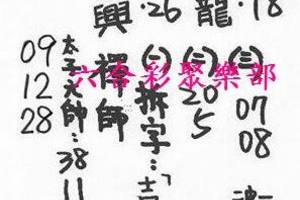 興·26 龍·18
六合彩聚樂部
09
12
28
太子大師:38
11
禪師
(一)拆字:「吉
(二)20
5
(三)07
08